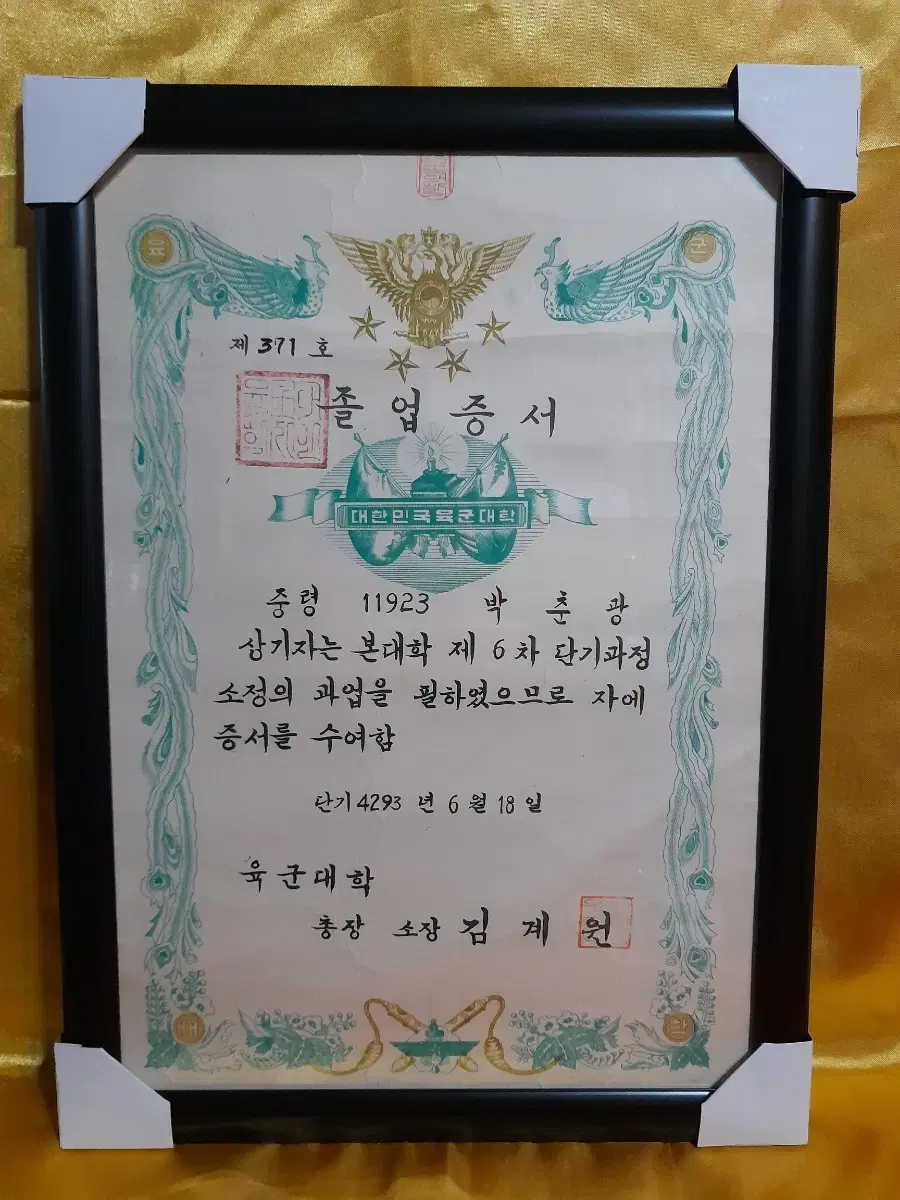 육 군
제 371 호
졸 업 증 서
대한민국육군대학
중령 11923 박 춘 광
상기자는 본대학 제 6 차 단기과정
소정의 과업을 필하였으므로 자에
증서를 수여함
단기 4293 년 6 월 18 일
육 군 대 학
총장 소장 김 계 원
대 학